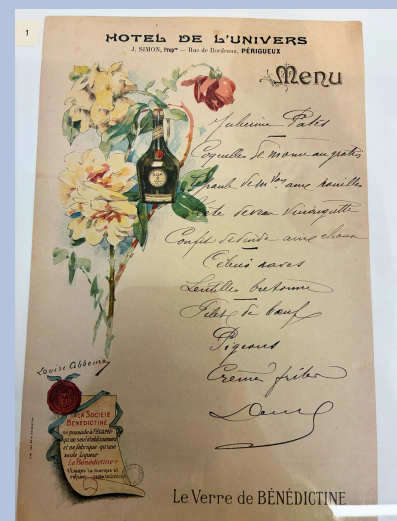 1
HOTEL DE L'UNIVERS
J. SIMON, Propre — Rue de Bordeaux, PÉRIGUEUX
Menu
Julienne Pates
Coquilles de morue au gratin
Epaule de mton aux nouilles
Tête de veau Vinaigrette
Confit de dinde aux choux
Céleris raves
Lentilles bretonne
Filet de bœuf
Pigeons
Crèmes frites
Louise Abbema
LA SOCIÉTÉ
BÉNÉDICTINE
ne possède à FÉCAMP
qu'un seul établissement
et ne fabrique qu'une
seule Liqueur
La Bénédictine
Le Verre de BÉNÉDICTINE